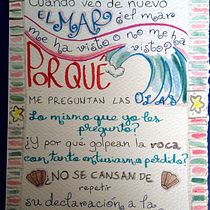 Cuando veo de nuevo
EL MAR ¿el mar
me ha visto o no me
ha visto?
POR QUÉ
ME PREGUNTAN LAS OLAS
Lo mismo que yo les
pregunto?
¿Y por qué golpean la roca
con tanto entusiasmo perdido?
¿NO SE CANSAN DE
repetir
su declaración a la